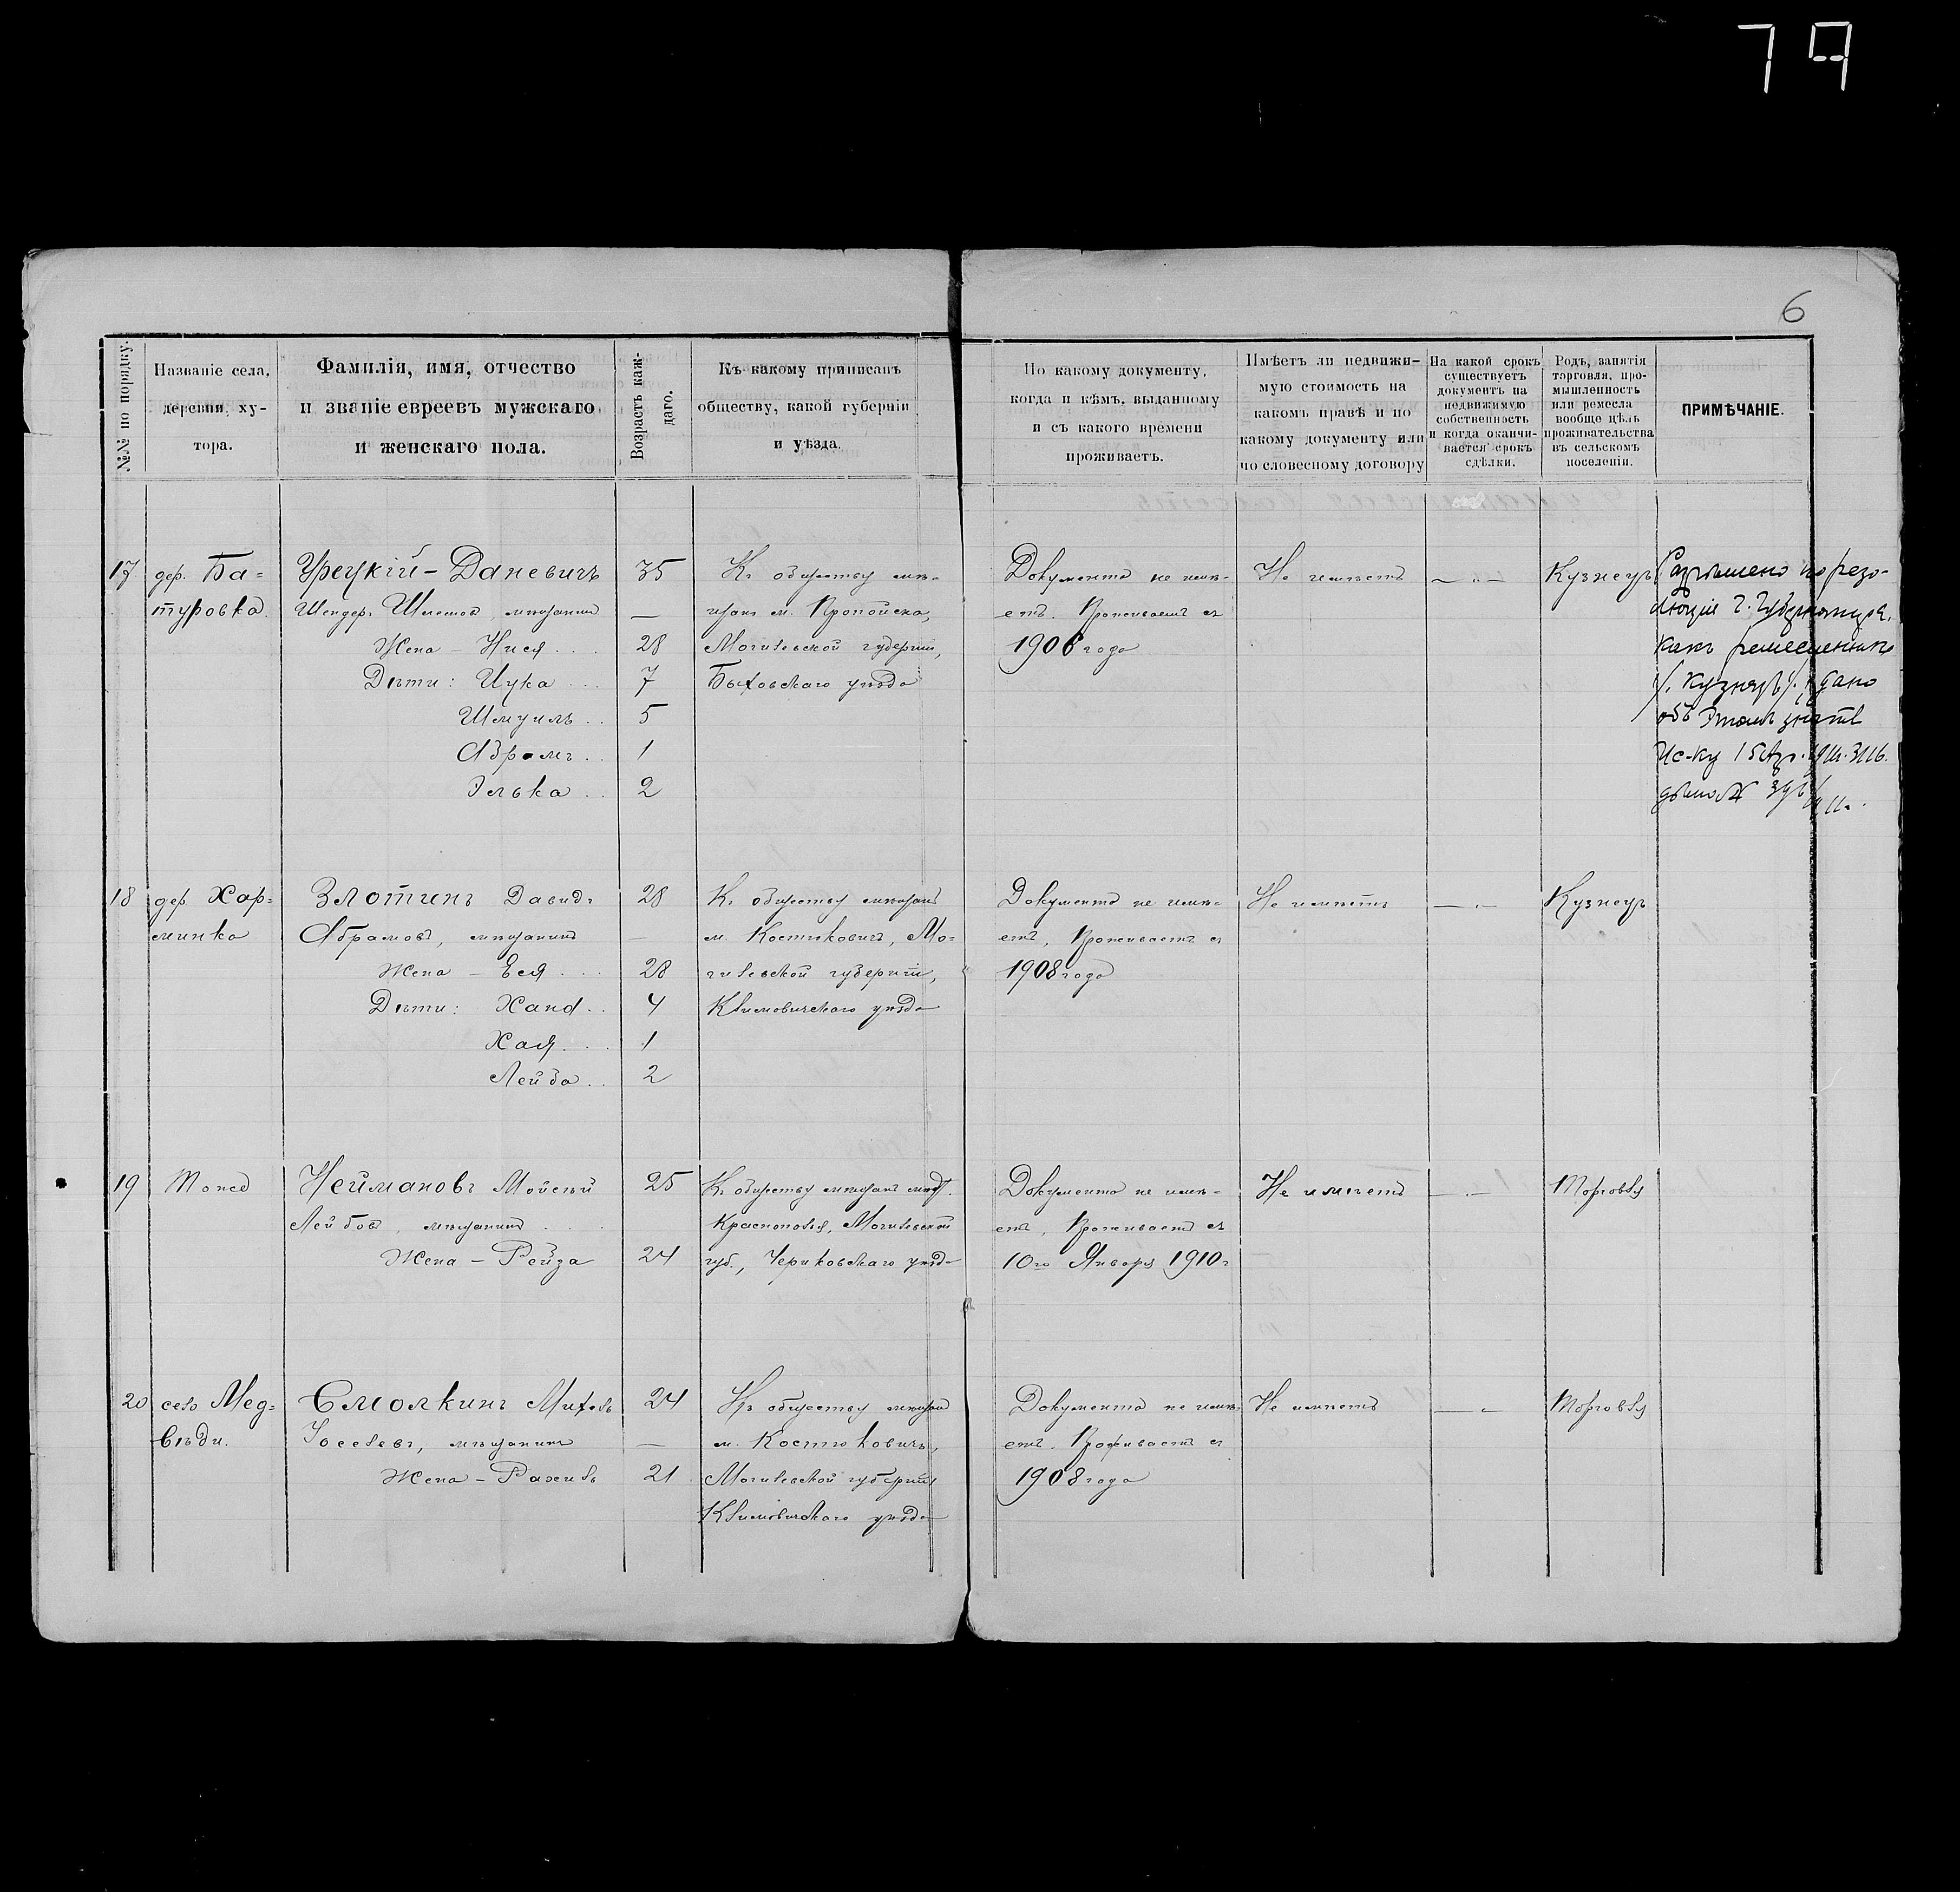 79
6
№№ по порядку.
Названіе села,
деревни, ху-
тора.
Фамилія, имя, отчество
и званіе евреевъ мужскаго
и женскаго пола.
Возрастъ каж-
даго.
Къ какому приписанъ
обществу, какой губерніи
и уѣзда.
По какому документу,
когда и кѣмъ, выданному
и съ какого времени
проживаетъ.
Имѣетъ ли недвижи-
мую стоимость на
какомъ правѣ и по
какому документу или
по словесному договору
На какой срокъ
существуетъ
документъ на
недвижимую
собственность
и когда оканчи-
вается срокъ
сдѣлки.
Родъ, занятія
торговля, про-
мышленность
или ремесла
вообще цѣль
проживательства
въ сельскомъ
поселеніи.
ПРИМѢЧАНІЕ.
17
дер. Ба-
туровка.
Урецкій - Даневичъ
Шендеръ Шлемовъ, мѣщанинъ
Жена - Нися
Дѣти: Цука
Шмуилъ
Абрамъ
Элька
35
—
28
7
5
1
2
Къ обществу мѣ-
щанъ м. Пропойска,
Могилевской губерніи,
Быховскаго уѣзда
Документа не имѣ-
етъ. Проживаетъ съ
1906 года
Не имѣетъ
— „ —
Кузнецъ
Разрѣшено по резо-
люціи г. Губернатора,
какъ ремесленнику
/. кузнецъ /. и дано
объ этомъ знать
Ис-ку 15 Апр.
дѣло №
18
дер. Хар-
минка
Злотинъ Давидъ
Абрамовъ, мѣщанинъ
Жена - Еся
Дѣти: Хана
Хая
Лейба
28
—
28
4
1
2
Къ обществу мѣщанъ
м. Костюковичъ, Мо-
гилевской губерніи,
Климовичскаго уѣзда
Документа не имѣ-
етъ. Проживаетъ съ
1908 года
Не имѣетъ
— „ —
Кузнецъ
19
Тоже
Неймановъ Мойсей
Лейбовъ, мѣщанинъ
Жена - Рейза
25
24
Къ обществу мѣщанъ мѣст.
Краснополья, Могилевской
губ., Чериковскаго уѣзда
Документа не имѣ-
етъ, Проживаетъ съ
10го Января 1910г
Не имѣетъ
— „ —
Торговля
20
село Мед-
вѣди.
Смолкинъ Михель
Іоселевъ, мѣщанинъ
Жена - Рахиль
24
—
21
Къ обществу мѣщанъ
м. Костюковичъ,
Могилевской губерніи,
Климовичскаго уѣзда
Документа не имѣ-
етъ. Проживаетъ съ
1908 года
Не имѣетъ
— „ —
Торговля